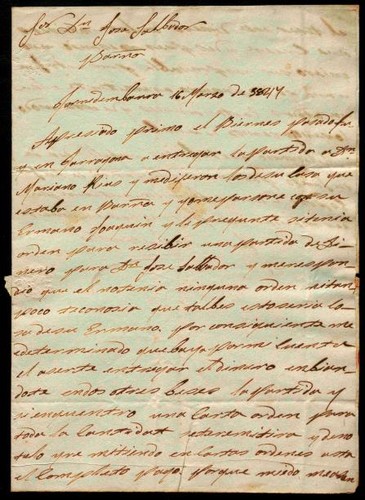 Sor Dn Jose Salbador
Barna
Torredembarra 16 Marzo de 1847
Apreciado primo el Biernes pasado fui
a en tarragona a entregar la partida a Dn
Mariano Rius y me dijeron los de su casa que
estaba en Barna y me persone con su
Ermano Joaquin y le pregunte si tenia
orden para recibir una partida de di
nero para Dn Jose Salbador y me respon
dio que el no tenia ninguna orden ni tan
poco te conosia que talbes esto seria co
sa de su Ermano, por consiguiente me
e determinado que baya por mi cuenta
el aserte entregar el dinero enbian
dote en dos o tres beses la partida y
si encuentro una Carta orden para
toda la Cantidat te remitire y de no
te lo ire mitiendo en Cartas ordenes asta
el Completo pago, porque